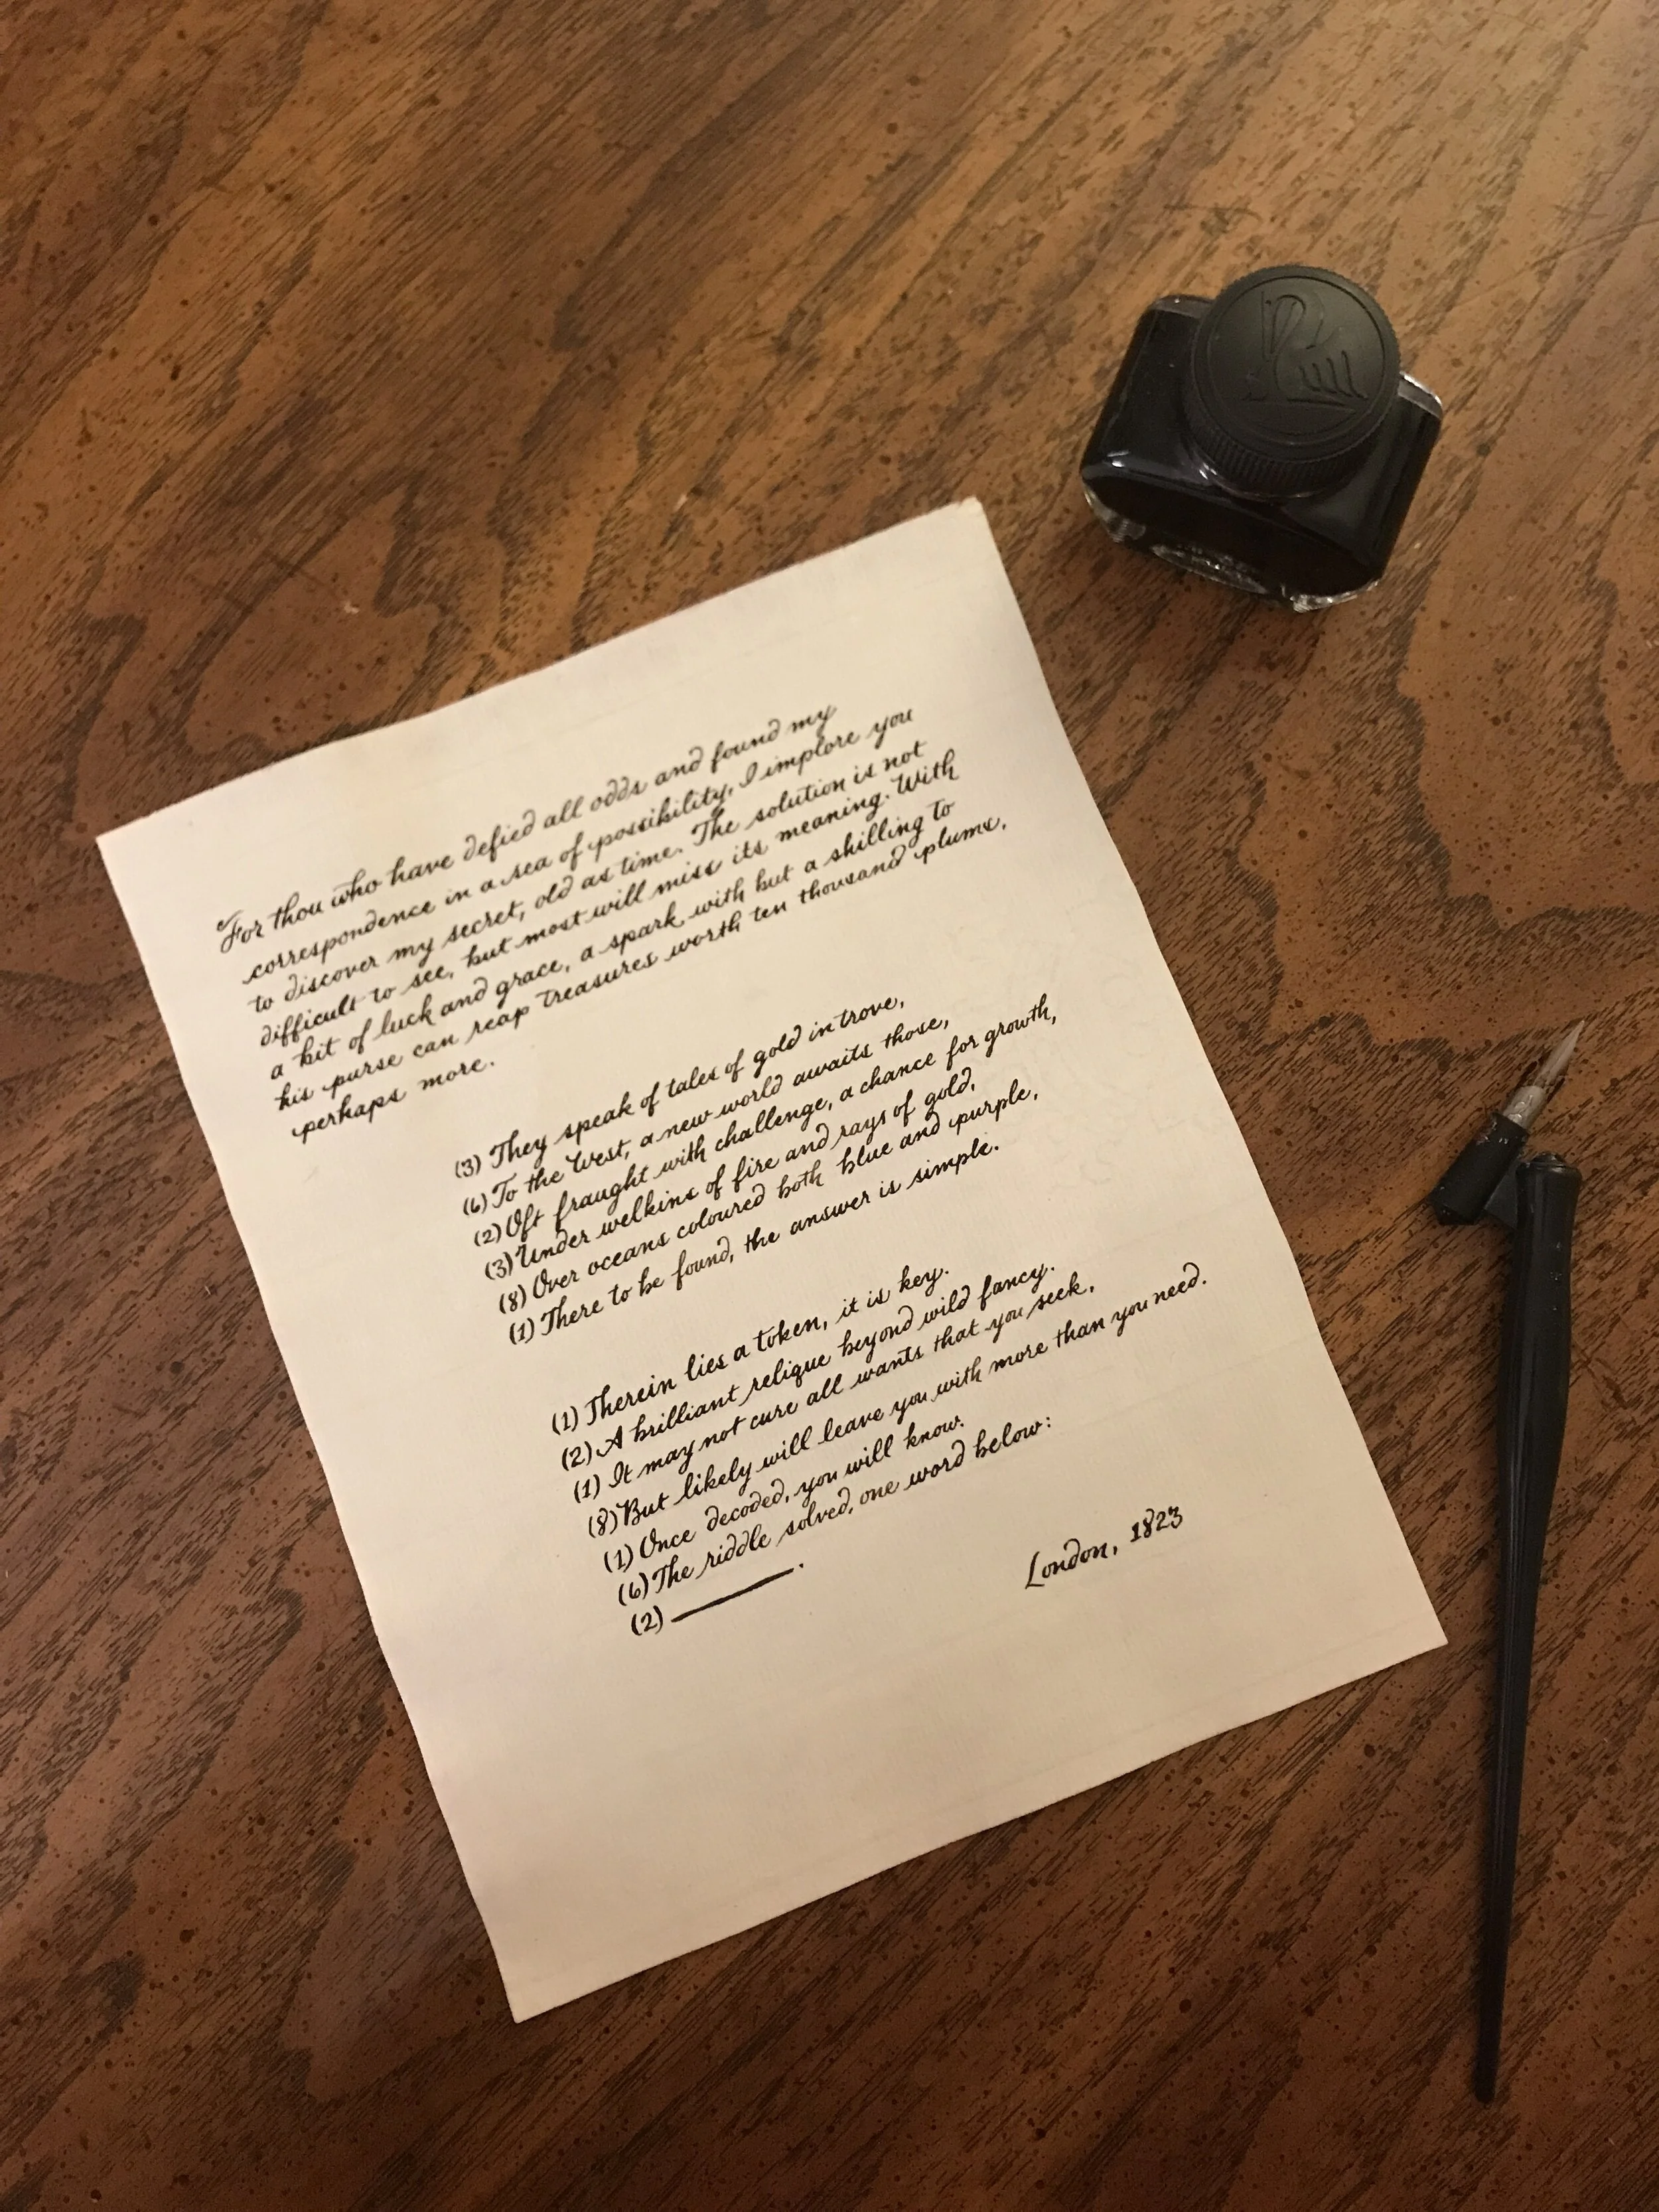 For thou who have defied all odds and found my
correspondence in a sea of possibility, I implore you
to discover my secret, old as time. The solution is not
difficult to see, but most will miss its meaning. With
a bit of luck and grace, a spark, with but a shilling to
his purse can reap treasures worth ten thousand plums,
perhaps more.
(3) They speak of tales of gold in trove,
(6) To the West, a new world awaits those,
(2) Oft fraught with challenge, a chance for growth,
(3) Under welkins of fire and rays of gold,
(8) Over oceans coloured both blue and purple,
(1) There to be found, the answer is simple.
(1) Therein lies a token, it is key.
(2) A brilliant relique beyond wild fancy.
(1) It may not cure all wants that you seek,
(8) But likely will leave you with more than you need.
(1) Once decoded, you will know.
(6) The riddle solved, one word below:
(2) ________.
London, 1823